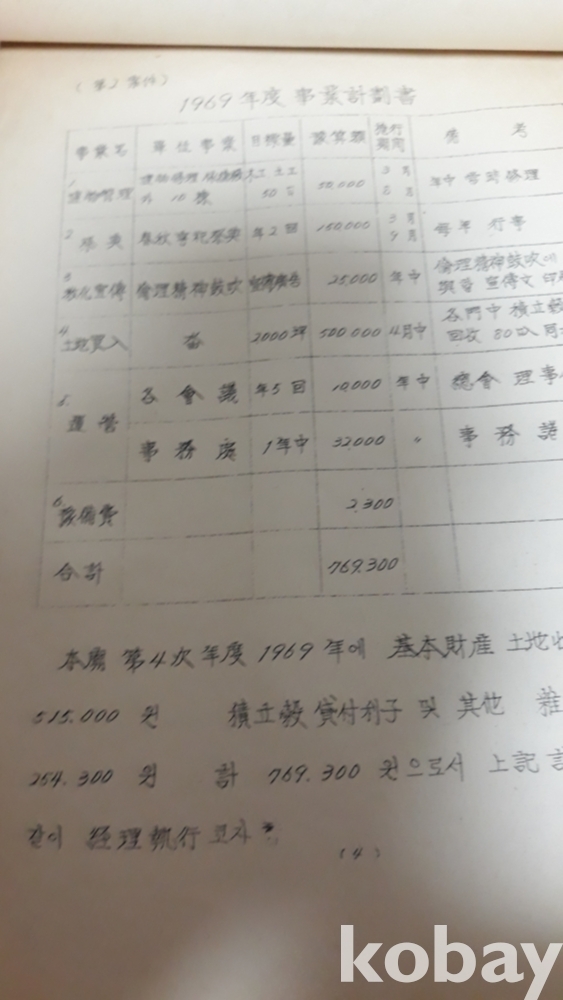 (第2案件)
1969年度 事業計劃書
事業名 單位事業 目標量 豫算額 施行期間 備考
1 建物管理 外 10棟 木工 土工 50名 50,000 3月 年中 常時修理
2 祭奠 春秋享祀祭奠 年2回 150,000 3月 9月 每年 行事
3 敎化宣傳 倫理精神鼓吹 25,000 年中 倫理精神鼓吹에 宣傳文 印刷
4 土地買入 畓 2000坪 500,000 4月中 各門中 積立穀 回收 80叺
5 運營 各會議 年5回 10,000 年中 總會 理事
事務 1年中 32,000 〃 事務
6 豫備費 2,300
合計 769,300
本 第4次 年度 1969年에 基本財産 土地收
515.000 원 積立穀 貸付利子 및 其他 雜
254.300 원 計 769.300 원으로서 上記
같이 経理執行 코자 함
(4)
kobay